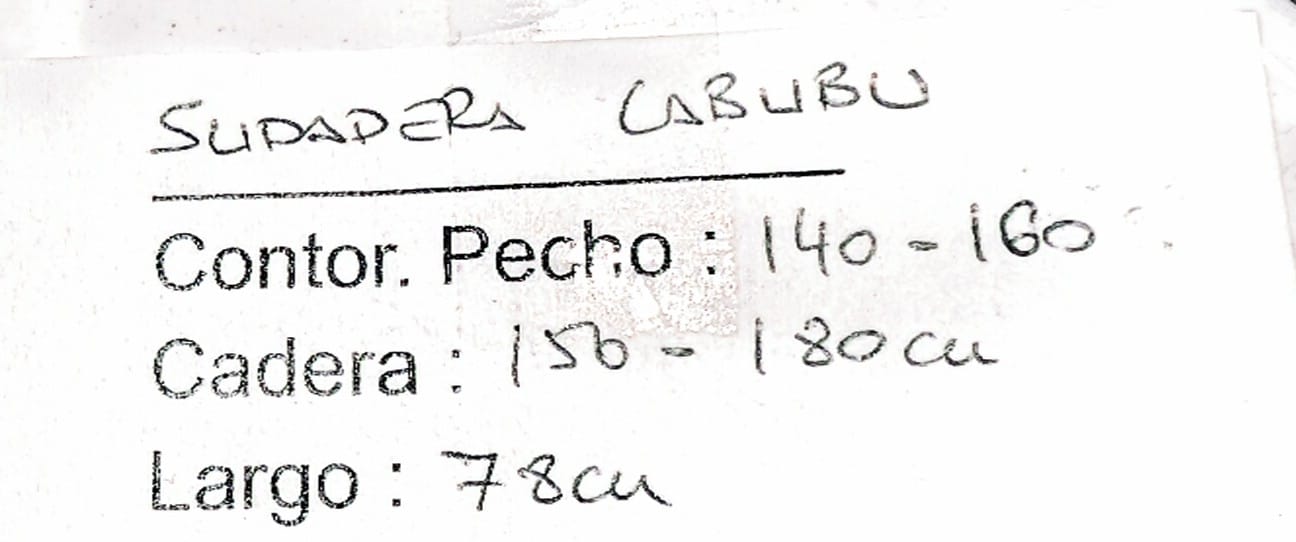 SUDADERA LABUBU
Contor. Pecho : 140 - 160
Cadera : 150 - 180 cm
Largo : 78cm